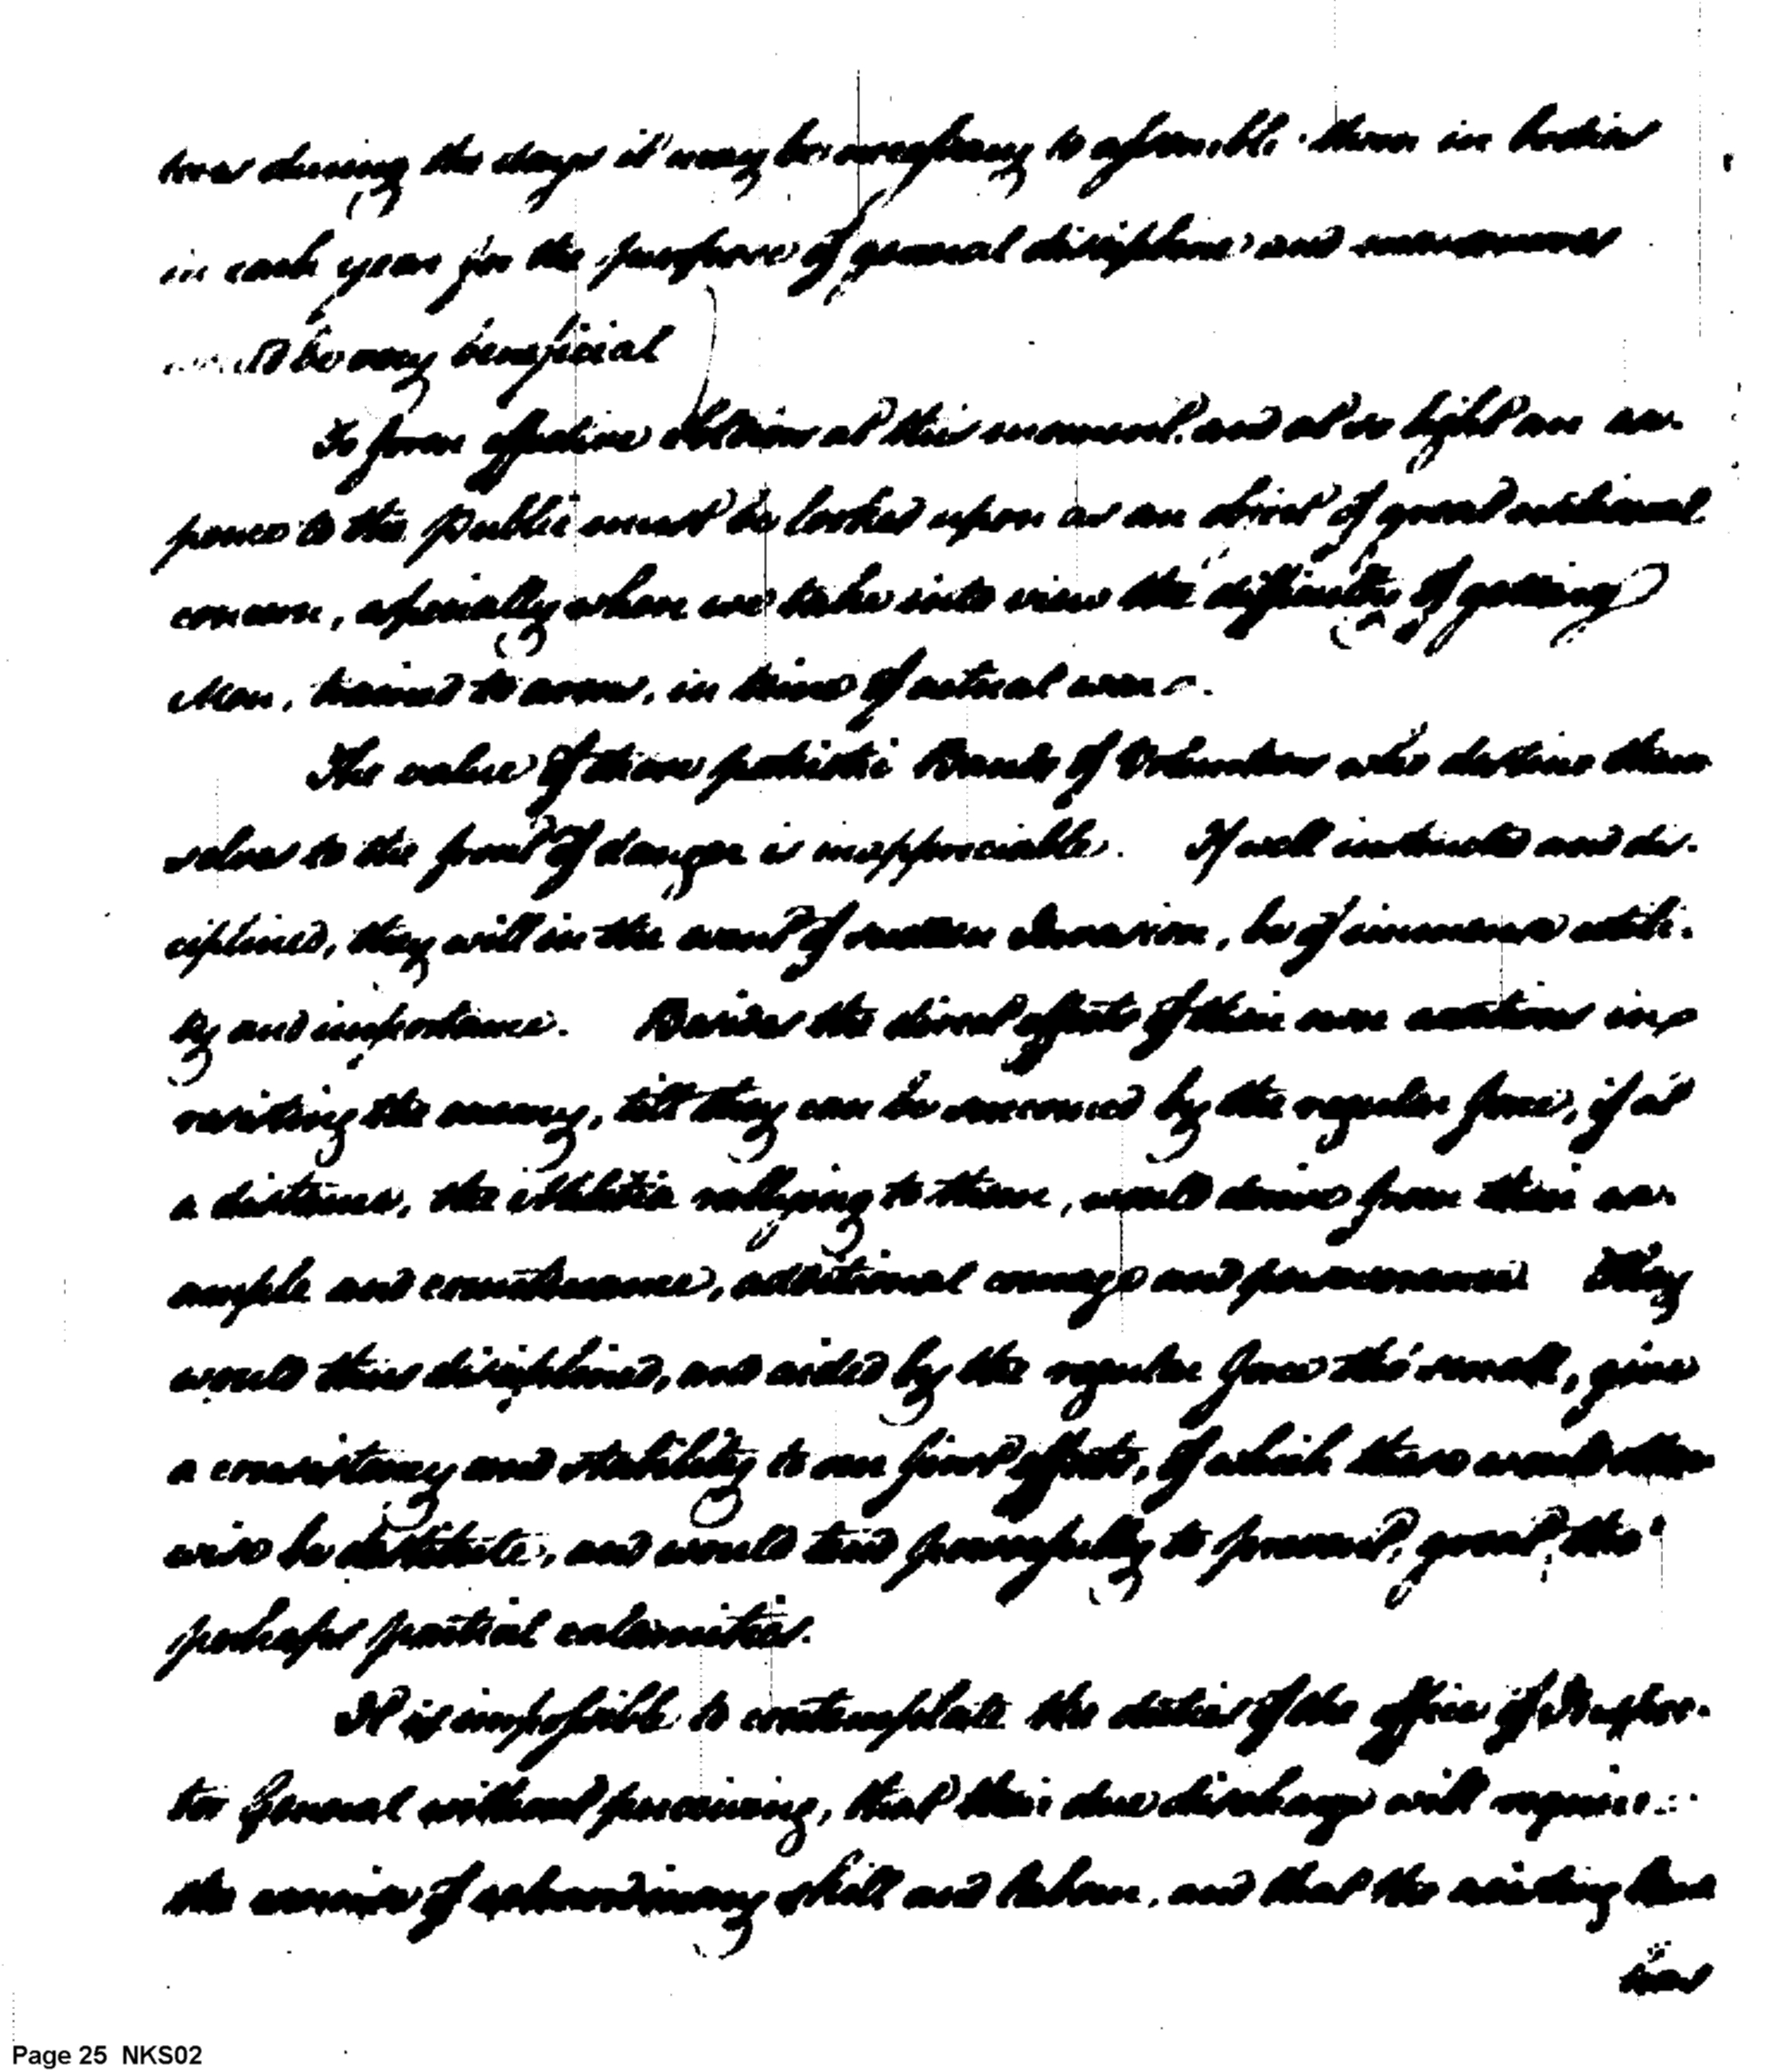 teers during the days it may be necessary to assemble them in bodies
in each year for the purpose of general discipline and manoeuvres
would be very beneficial
To form effective Soldiers at this moment and at as light an ex-
pence to the public must be looked upon as an object of great national
concern, especially when we take into view the difficulties of getting
Men, trained to arms, in times of actual war.
The value of those patriotic Bands of Volunteers who destine them
selves to the front of danger is inappreciable. If well instructed and dis-
ciplined, they will in the event of sudden Invasion, be of immense utili-
ty and importance. Besides the direct effects of their own exertions in
resisting the enemy, till they can be succoured by the regular force, if at
a distance, the Militia rallying to them, would derive from their ex-
ample and countenance, additional courage and perseverance They
would thus disciplined, and aided by the regular force tho' small, give
a consistency and stability to our first efforts, of which these would other
wise be destitute, and would tend powerfully to prevent, great, tho'
perhaps partial calamities.
It is impossible to contemplate the duties of the office of Inspec-
tor General without perceiving, that their due discharge will require
the exercise of extraordinary skill and talents, and that the existing
laws
Page 25 NKS02